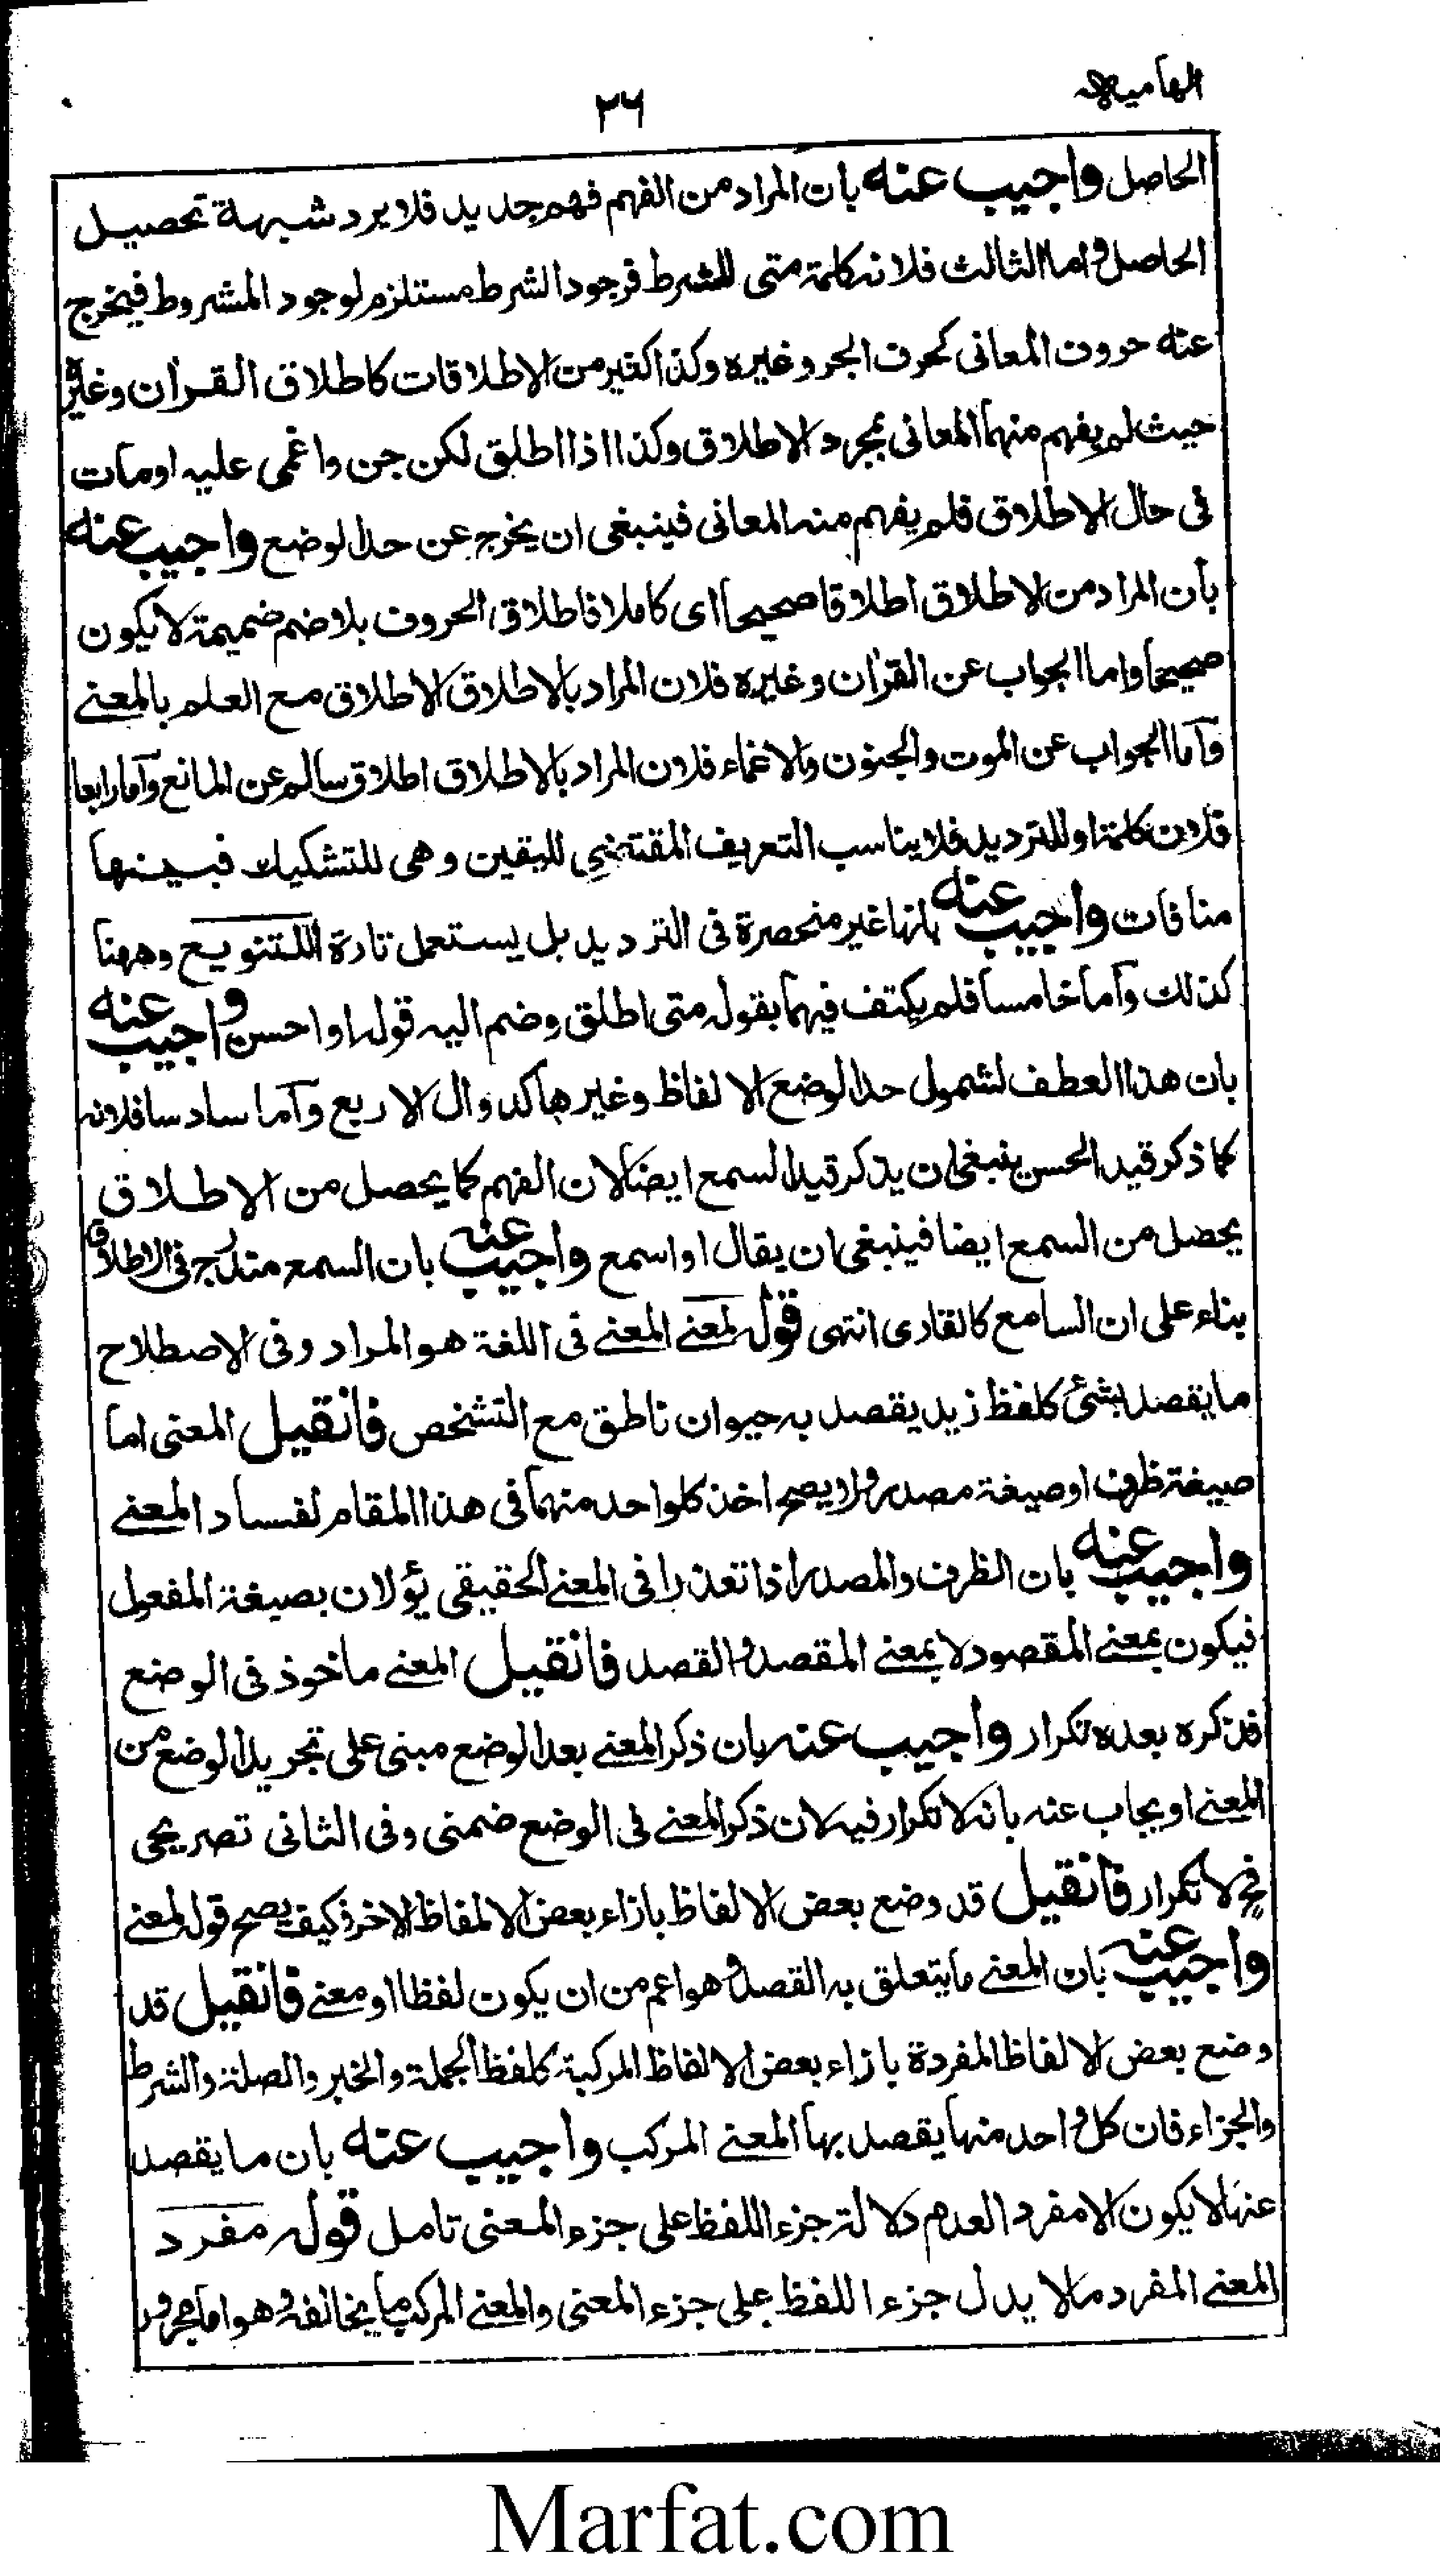 الهاميه
٢٦
الحاصل واجيب عنه بان المراد من الفهم فهم جديد فلا يرد شبهة تحصيل
الحاصل واما الثالث فلانه كلمة متى للشرط فوجود الشرط مستلزم لوجود المشروط فيخرج
عنه حروف المعانى كحرف الجر وغيره وكذا كثير من الاطلاقات كاطلاق القران وغيره
حيث لم يفهم منهما المعانى بمجرد الاطلاق وكذا اذا اطلق لكن جن واغمى عليه اومات
فى حال الاطلاق فلم يفهم منه المعانى فينبغى ان يخرج عن حد الوضع واجيب عنه
بان المراد من الاطلاق اطلاقا صحيحا اى كاملا فاطلاق الحروف بلا ضم ضميمة لا يكون
صحيحا واما الجواب عن القران وغيره فلان المراد بالاطلاق الاطلاق مع العلم بالمعنے
واما الجواب عن الموت والجنون والاغماء فلان المراد بالاطلاق اطلاق سالم عن المانع واما رابعا
فلان كلمة او للترديد فلا يناسب التعريف المقتضى لليقين وهى للتشكيك فبينها
منافات واجيب عنه بانها غير منحصرة فى الترديد بل يستعمل تارة للتنويع وههنا
كذلك واما خامسا فلم يكتف فيهما بقوله متى اطلق وضم اليه قوله او احسن واجيب عنه
بان هذا العطف لشمول حد الوضع الالفاظ وغيرها كدوال الاربع واما سادسا فلانه
كما ذكر قيد الحسن ينبغى ان يذكر قيد السمع ايضا لان الفهم كما يحصل من الاطلاق
يحصل من السمع ايضا فينبغى ان يقال او اسمع واجيب عنه بان السمع مندرج فى الاطلاق
بناء على ان السامع كالقارى انتهى قوله لمعنے المعنے فى اللغة هو المراد وفى الاصطلاح
ما يقصد بشئ كلفظ زيد يقصد به حيوان ناطق مع التشخص فانقيل المعنى اما
صيغة ظرف او صيغة مصدر ولا يصح اخذ كلواحد منهما فى هذا المقام لفساد المعنے
واجيب عنه بان الظرف والمصدر اذا تعذرا فى المعنے الحقيقى يؤلان بصيغة المفعول
فيكون بمعنے المقصود لا بمعنے المقصد والقصد فانقيل المعنے ماخوذ فى الوضع
فذكره بعده تكرار واجيب عنه بان ذكر المعنے بعد الوضع مبنى على تجريد الوضع من
المعنے او يجاب عنه بانه لا تكرار فيه لان ذكر المعنے فى الوضع ضمنى وفى الثانى تصريحى
فح لا تكرار فانقيل قد وضع بعض الالفاظ بازاء بعض الالفاظ الاخر فكيف يصح قوله لمعنے
واجيب عنه بان المعنے ما يتعلق به القصد وهو اعم من ان يكون لفظا او معنے فانقيل قد
وضع بعض الالفاظ المفردة بازاء بعض الالفاظ المركبة كلفظ الجملة والخبر والصلة والشرط
والجزاء فان كل واحد منها يقصد بها المعنے المركب واجيب عنه بان ما يقصد
عنها لا يكون الا مفرد العدم دلالة جزء اللفظ على جزء المعنى تامل قوله مفرد
المعنے المفرد مالا يدل جزء اللفظ على جزء المعنى والمعنے المركب ما يخالفه وهو اما مجرور
Marfat.com